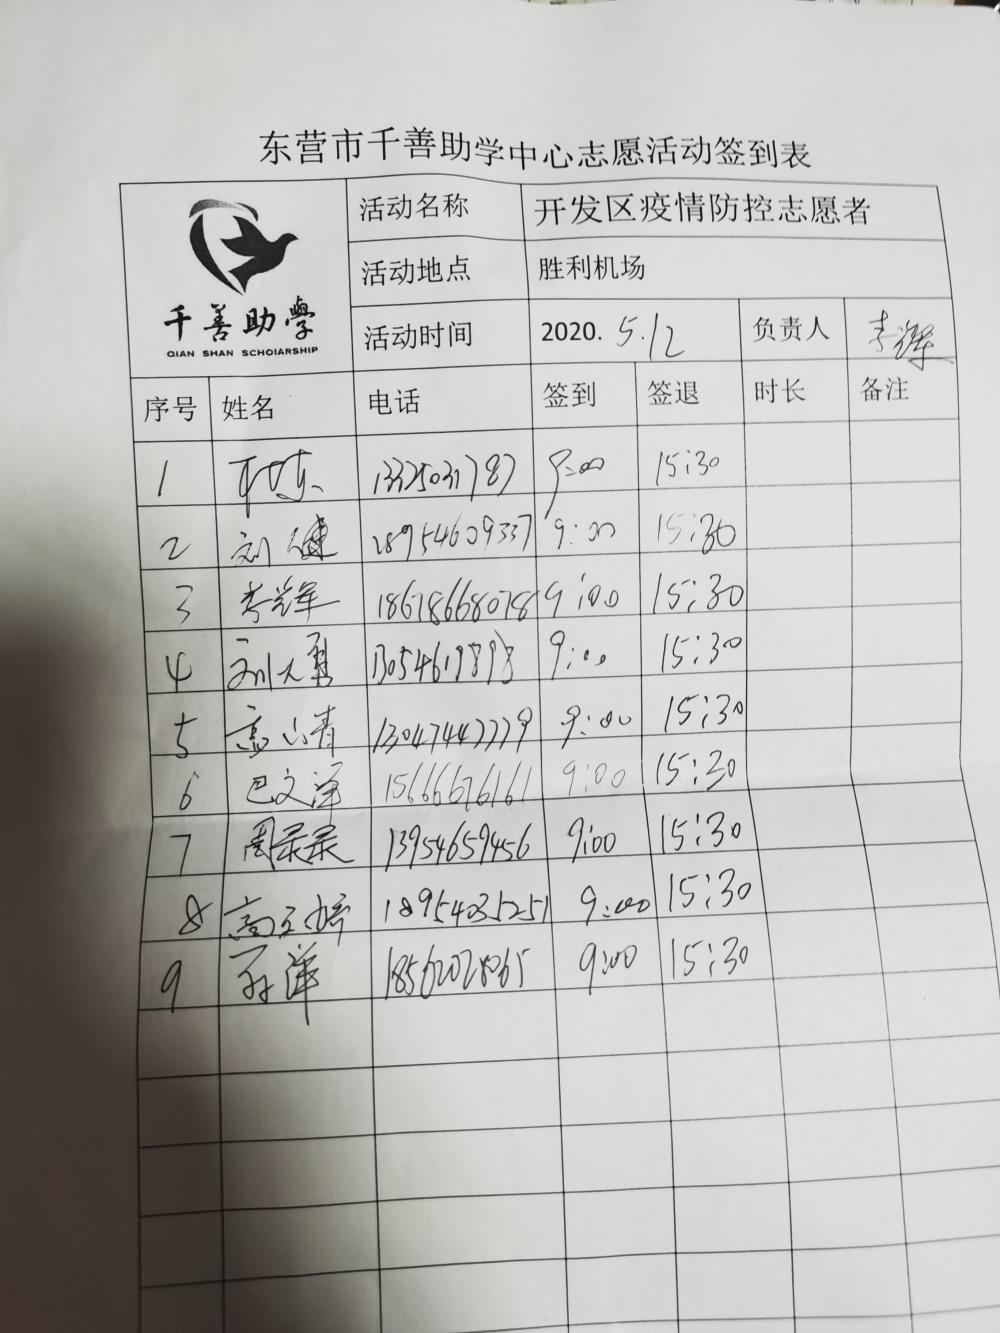 东营市千善助学中心志愿活动签到表
千善助學
QIAN SHAN SCHOLARSHIP
活动名称 开发区疫情防控志愿者
活动地点 胜利机场
活动时间 2020. 5.12 负责人 李辉
序号 姓名 电话 签到 签退 时长 备注
1 13325031787 9:00 15:30
2 刘健 18954609337 9:00 15:30
3 李辉 18678668078 9:00 15:30
4 刘大勇 13054619898 9:00 15:30
5 高山青 13047442279 9:00 15:30
6 巴文泽 15666676161 9:00 15:30
7 周录录 13954659456 9:00 15:30
8 高玉婷 18954035251 9:00 15:30
9 孙萍 18562028065 9:00 15:30